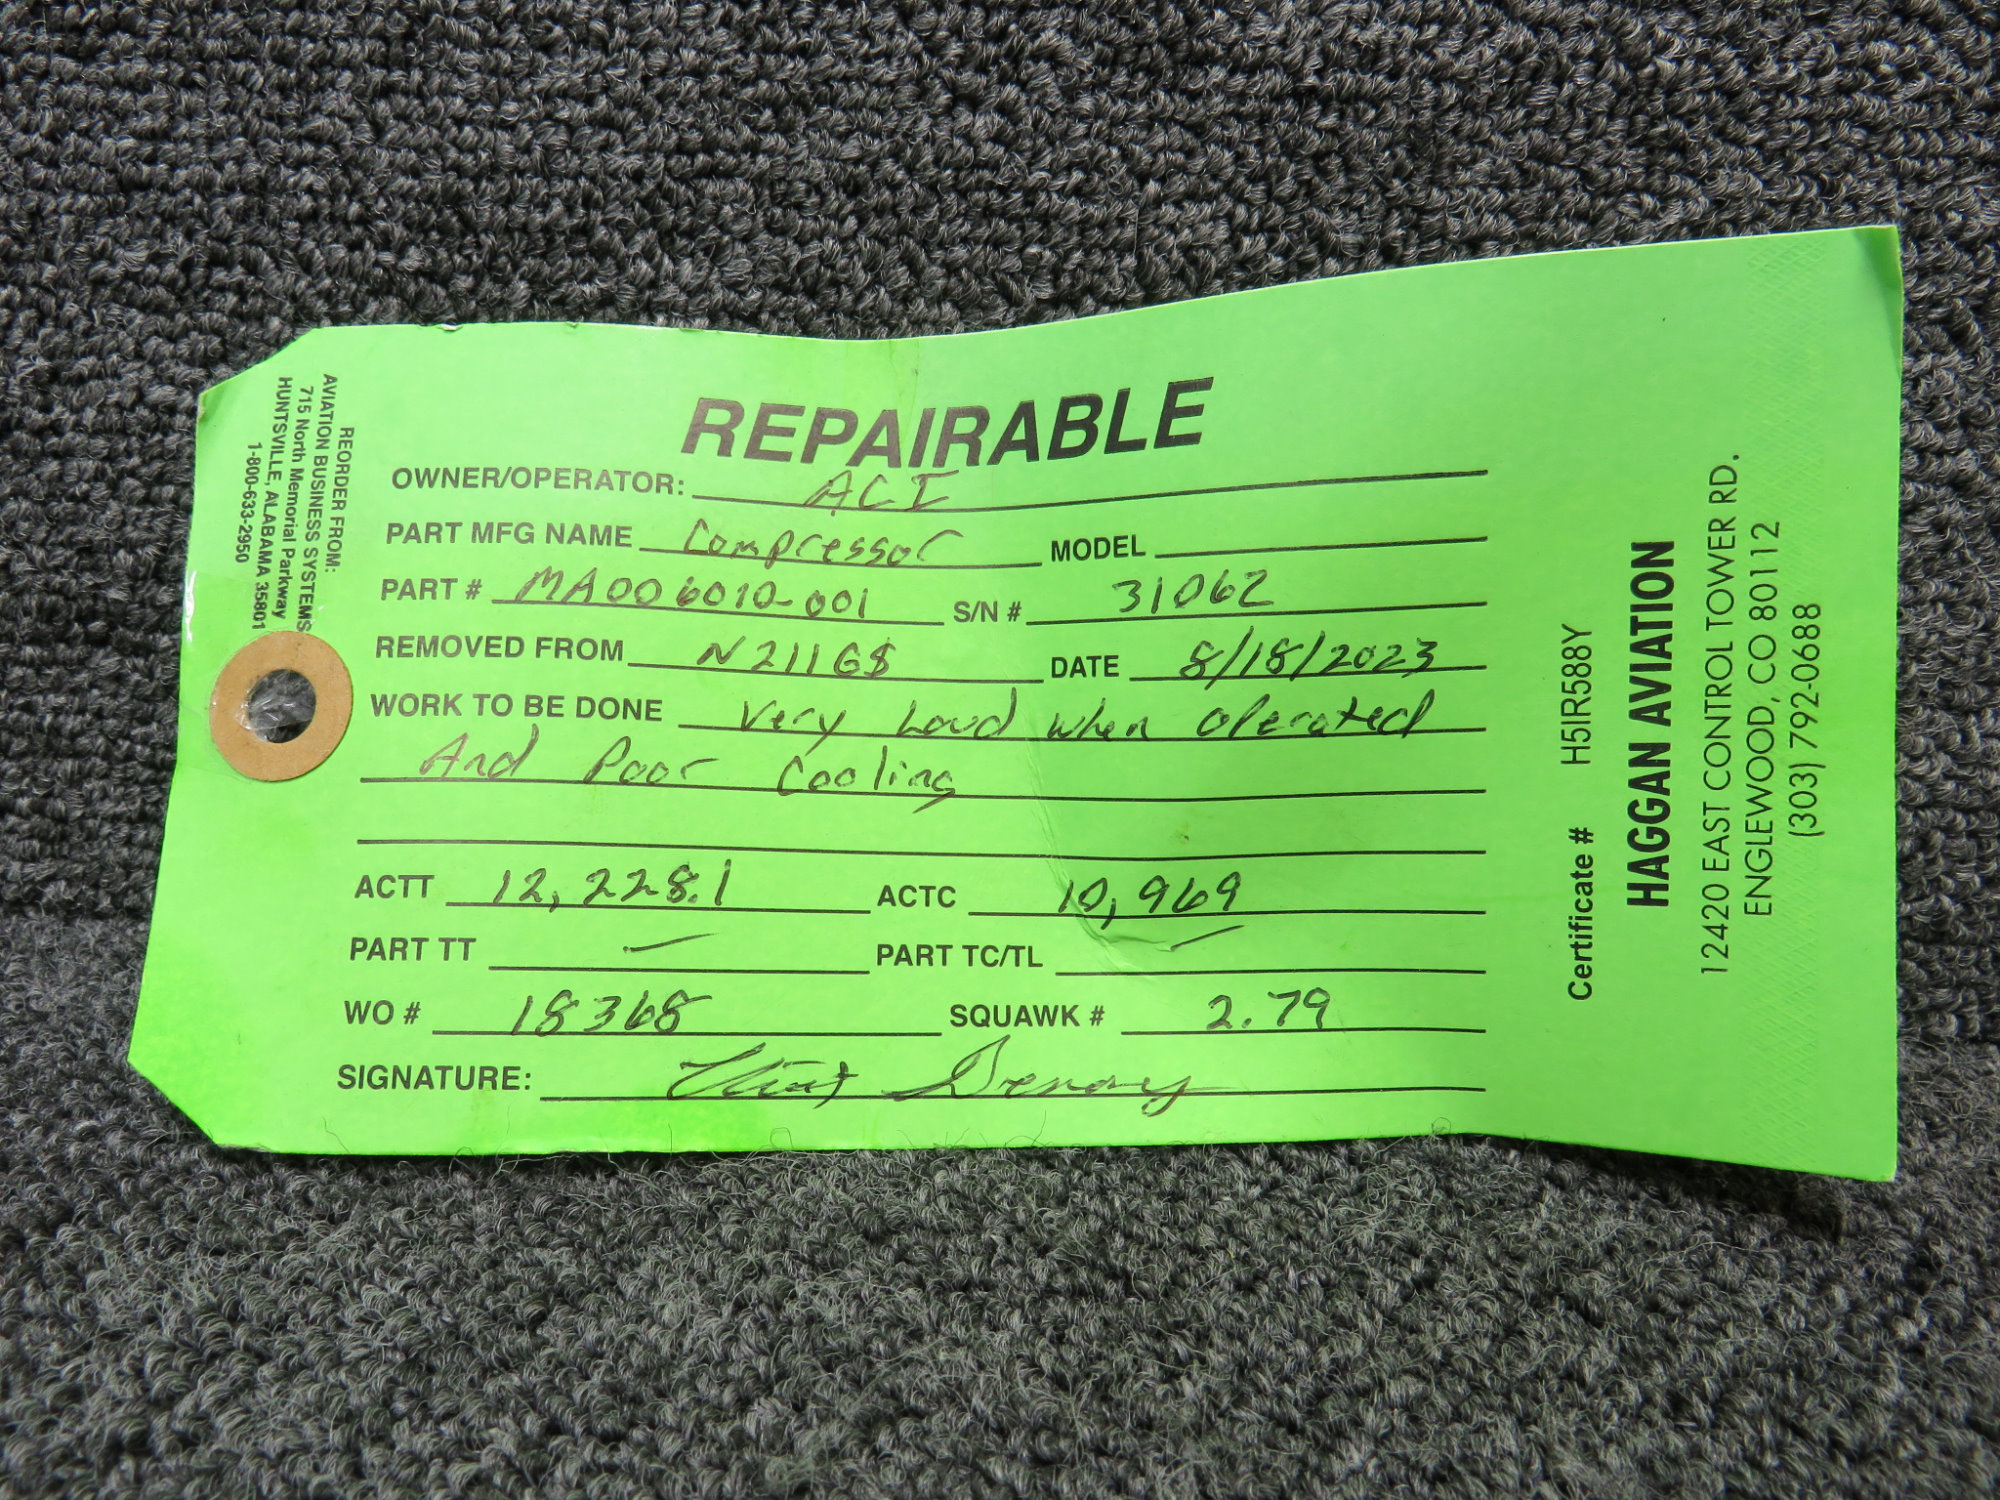 REPAIRABLE
OWNER/OPERATOR: ACI
PART MFG NAME Compressor MODEL
PART # MA006010-001 S/N # 31062
REMOVED FROM N211G$ DATE 8/18/2023
WORK TO BE DONE Very Loud when operated
And Poor Cooling
ACTT 12,228.1 ACTC 10,969
PART TT — PART TC/TL —
WO # 18368 SQUAWK # 2.79
SIGNATURE:
REORDER FROM:
AVIATION BUSINESS SYSTEMS
715 North Memorial Parkway
HUNTSVILLE, ALABAMA 35801
1-800-633-2950
Certificate # H5IR588Y
HAGGAN AVIATION
12420 EAST CONTROL TOWER RD.
ENGLEWOOD, CO 80112
(303) 792-0688